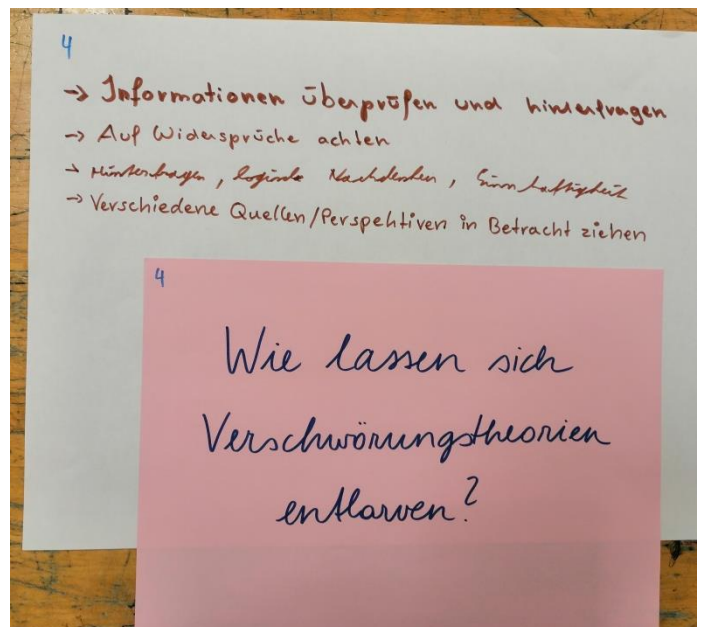 4
→ Informationen überprüfen und hinterfragen
→ Auf Widersprüche achten
→ Hinterfragen, logisches Nachdenken, Sinnhaftigkeit
→ Verschiedene Quellen/Perspektiven in Betracht ziehen
4
Wie lassen sich
Verschwörungstheorien
entlarven?